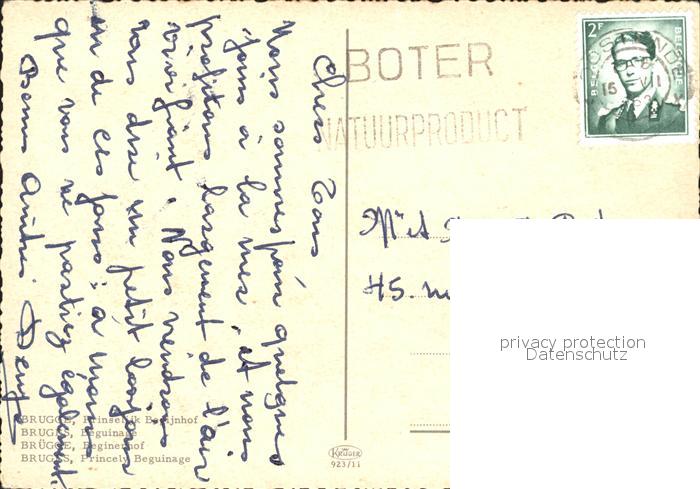 Chers Tous
Nous sommes pour quelques
jours à la mer, et nous
profitons largement de l'air
vivifiant. Nous viendrons
vous dire un petit bonjour
un de ces jours; à moins
que vous ne partiez également.
Bonnes Amitiés Denyse
BOTER
NATUURPRODUCT
2F
BELGIE BELGIQUE
OOSTENDE
15
VII
Mr et
45.
privacy protection
Datenschutz
BRUGGE, Prinselijk Begijnhof
BRUGES, Béguinage
BRÜGGE, Beginenhof
BRUGES, Princely Beguinage
KRÜGER
923/11